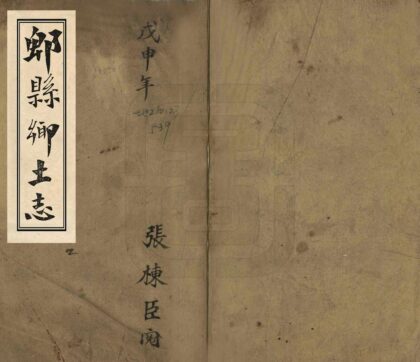 戊申年
539
張棟臣閱
郫縣鄉土志